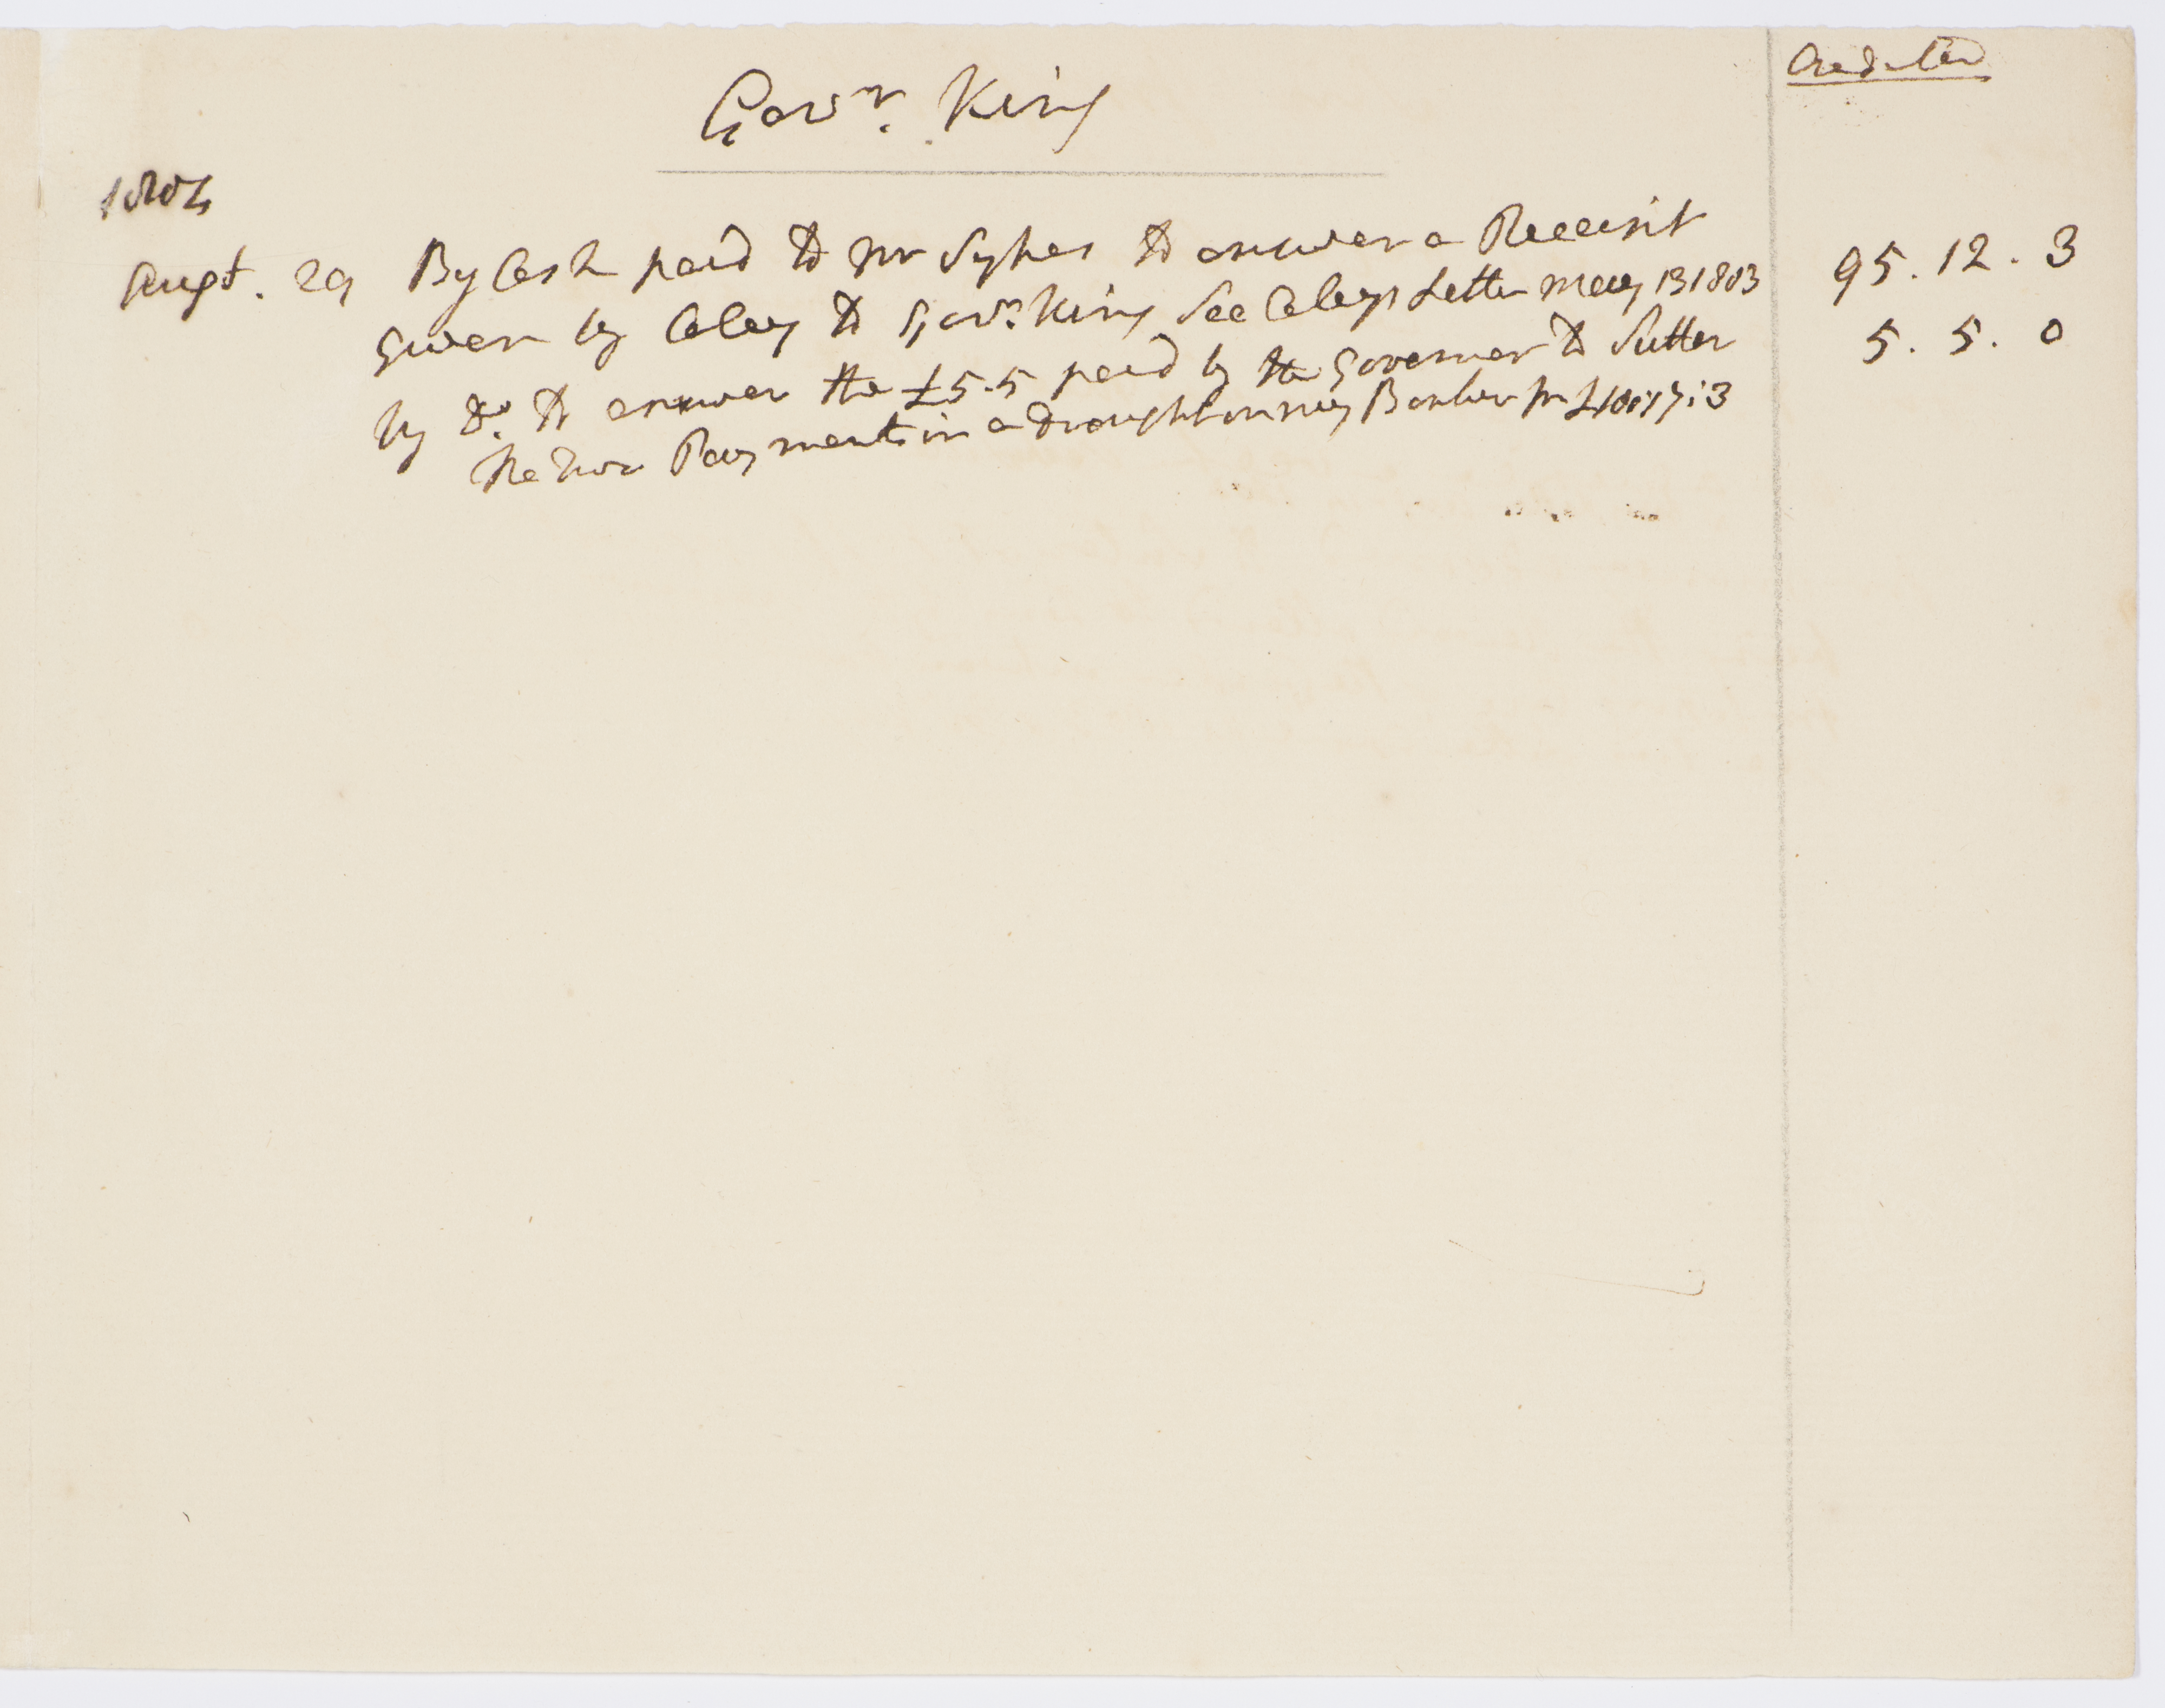 Creditor
Govr. King
1804
Augt. 29 By Cash paid to Mr Sykes to answer a Receipt
given by Caley to Govr. King See Caleys Letter May 13 1803 95.12.3
by Do. to answer the £5.5 paid by the Governor to Sutter 5.5.0
the two Payments in a Draught on my Banker for £100:17:3